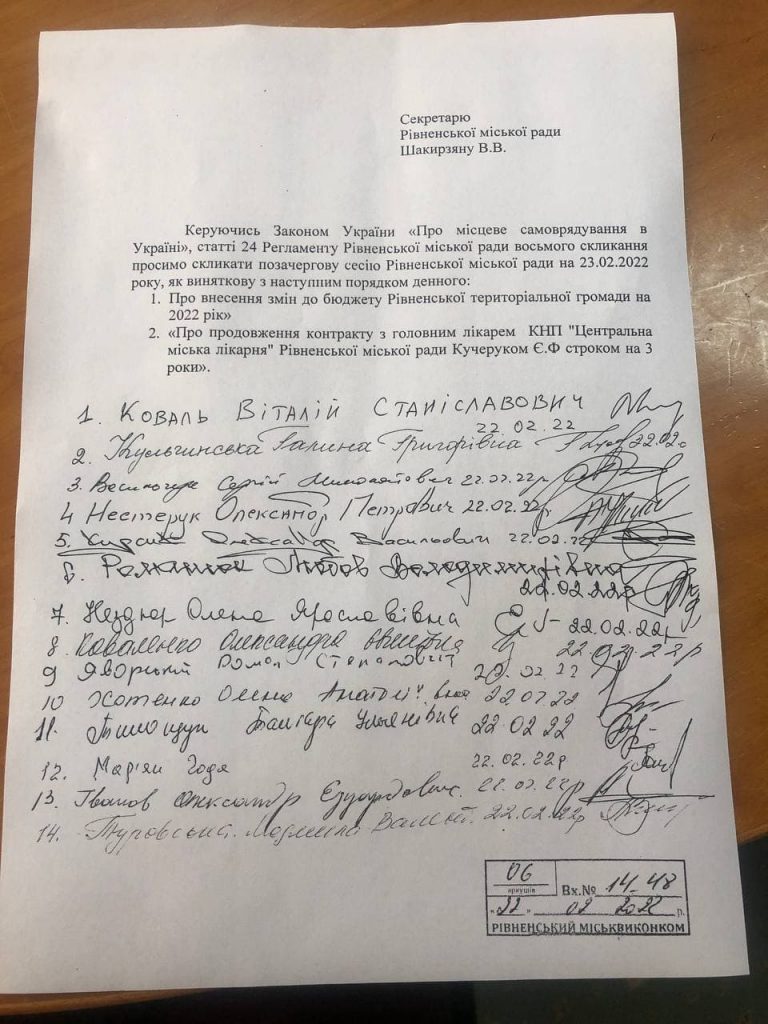 Секретарю
Рівненської міської ради
Шакирзяну В.В.
Керуючись Законом України «Про місцеве самоврядування в
Україні», статті 24 Регламенту Рівненської міської ради восьмого скликання
просимо скликати позачергову сесію Рівненської міської ради на 23.02.2022
року, як виняткову з наступним порядком денного:
1. Про внесення змін до бюджету Рівненської територіальної громади на
2022 рік»
2. «Про продовження контракту з головним лікарем КНП "Центральна
міська лікарня" Рівненської міської ради Кучеруком Є.Ф строком на 3
роки».
1. Коваль Віталій Станіславович
22.02.22
2. Кульчинська Галина Григорівна 22.02.
3. Сергій Миколайович 22.02.22р
4 Нестерук Олександр Петрович 22.02.22р
5. Олександр Васильович 22.02.22
6. Романюк Любов Володимирівна
22.02.22р
7. Олена Ярославівна 22.02.22р
8. Коваленко Олександра 22.02.22р
9 Яворський Роман Степанович 22.02.22
10 Хотенко Олена Анатоліївна 22.02.22
11. Тимощук Тамара Улянівна 22 02 22
12. Мар'ян Годя 22.02.22р
13. Іванов Олександр Едуардович. 22.02.22р
14. Туровська Людмила 22.02.22р
06
аркушів
Вх.№ 14-48
"22" 02 2022 р.
РІВНЕНСЬКИЙ МІСЬКВИКОНКОМ